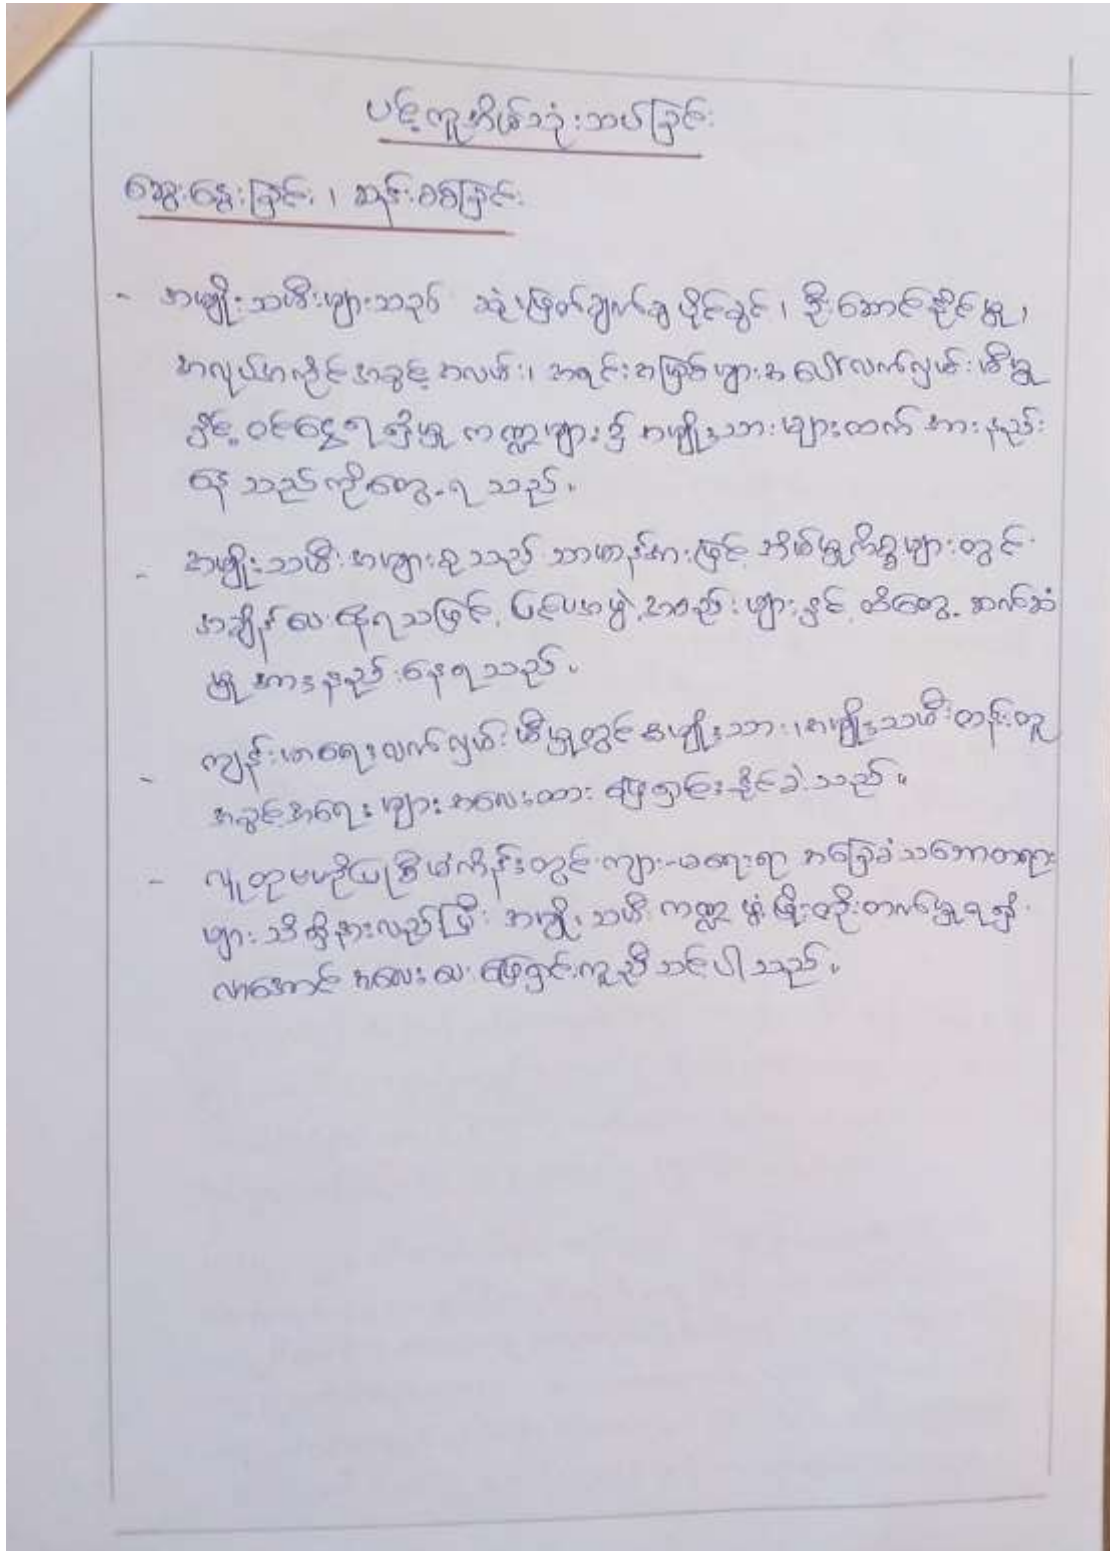 ပင့်ကူအိမ်သုံးသပ်ခြင်း
ဆွေးနွေးခြင်း ၊ ဆန်းစစ်ခြင်း
- အမျိုးသမီးများသည် ဆုံးဖြတ်ချက်ချပိုင်ခွင့် ၊ ဦးဆောင်နိုင်မှု ၊
အလုပ်အကိုင်အခွင့်အလမ်း ၊ အရင်းအမြစ်များအပေါ်လက်လှမ်းမီမှု
နှင့် ဝင်ငွေရရှိမှု ကဏ္ဍများ၌ အမျိုးသားများထက် အားနည်း
နေသည်ကိုတွေ့ရသည်။
- အမျိုးသမီးအများစုသည် သာမာန်အားဖြင့် အိမ်မှုကိစ္စများတွင်
အချိန်ပေးနေရသဖြင့် ပြင်ပအဖွဲ့အစည်းများနှင့် ထိတွေ့ဆက်ဆံ
မှု အားနည်းနေရသည်။
- ကျန်းမာရေးလက်လှမ်းမီမှုတွင် အမျိုးသား ၊ အမျိုးသမီး တန်းတူ
အခွင့်အရေးများ အလေးထား ဖြေရှင်းနိုင်ခဲ့သည်။
- လူထုဗဟိုပြုစီမံကိန်းတွင် ကျား-မရေးရာ အခြေခံသဘောတရား
များ သိရှိနားလည်ပြီး အမျိုးသမီးကဏ္ဍ ဖွံ့ဖြိုးတိုးတက်မှုရရှိ
လာအောင် အလေးပေးဖြေရှင်းကူညီသင့်ပါသည်။